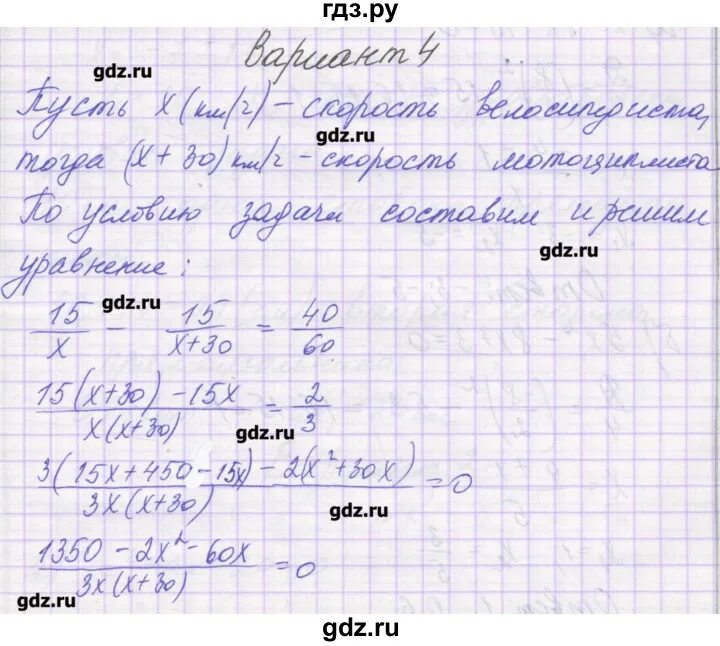 гдз.ру
Вариант 4
gdz.ru
Пусть x (км/ч) - скорость велосипедиста,
gdz.ru
тогда (x + 30) км/ч - скорость мотоциклиста
По условию задачи составим и решим
gdz.ru
уравнение:
gdz.ru
15/x - 15/(x+30) = 40/60
(15(x+30) - 15x)/(x(x+30)) = 2/3
gdz.ru
(3(15x + 450 - 15x) - 2(x² + 30x))/(3x(x+30)) = 0
gdz.ru
(1350 - 2x² - 60x)/(3x(x+30)) = 0
gdz.ru
gdz.ru